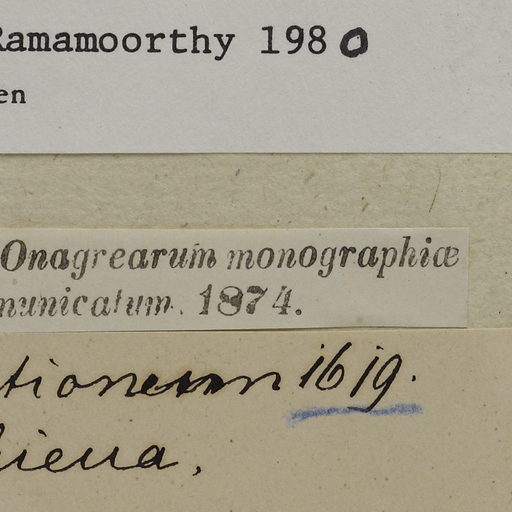 Ramamoorthy 1980
en
Onagrearum monographiæ
municatum. 1874.
1619.